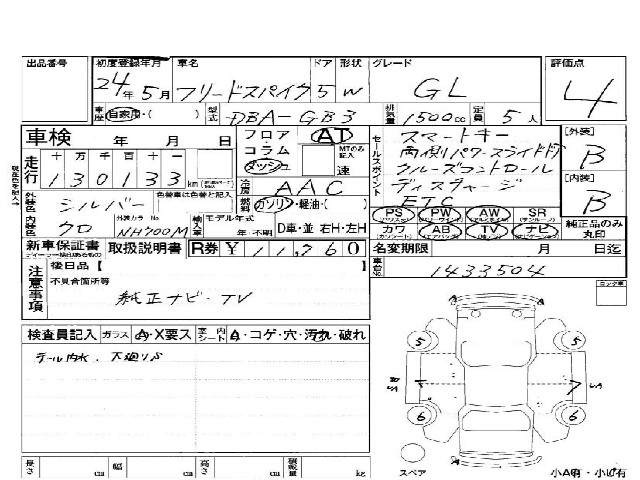 出品番号 初度登録年月 車名 ドア 形状 グレード 評価点
24年5月 フリードスパイク 5 W GL 4
車歴 自家用・( ) 型式 DBA-GB3 排気量 1500cc 定員 5人
車検 年 月 日 フロア・コラム AT セールスポイント スマートキー [外装]
走行 十 万 千 百 十 一 ダッシュ MTのみ記入 両側パワースライドドア B
130133 km 速 クルーズコントロール
外装色 シルバー 色替車は色替と記入 冷房 AAC ディスチャージ [内装]
燃料 ガソリン・軽油・( ) ETC B
内装色 クロ 外装カラーNo. NH700M 輸入車 モデル年式 年・不明 D車・並 右H・左H PS PW AW SR
カワ AB TV ナビ 純正品のみ丸印
新車保証書 取扱説明書 R券 ¥11,760 名変期限 月 日迄
注意事項 後日品【 車台No. 1433504
不具合箇所等
純正ナビ・TV
検査員記入 ガラス A・X要ス 室内シート A・コゲ・穴・汚れ・破れ
テール内水、下廻りS
5 5
7
6 6
長さ cm 幅 cm 高さ cm 積載量 kg スペア 小A有・小U有